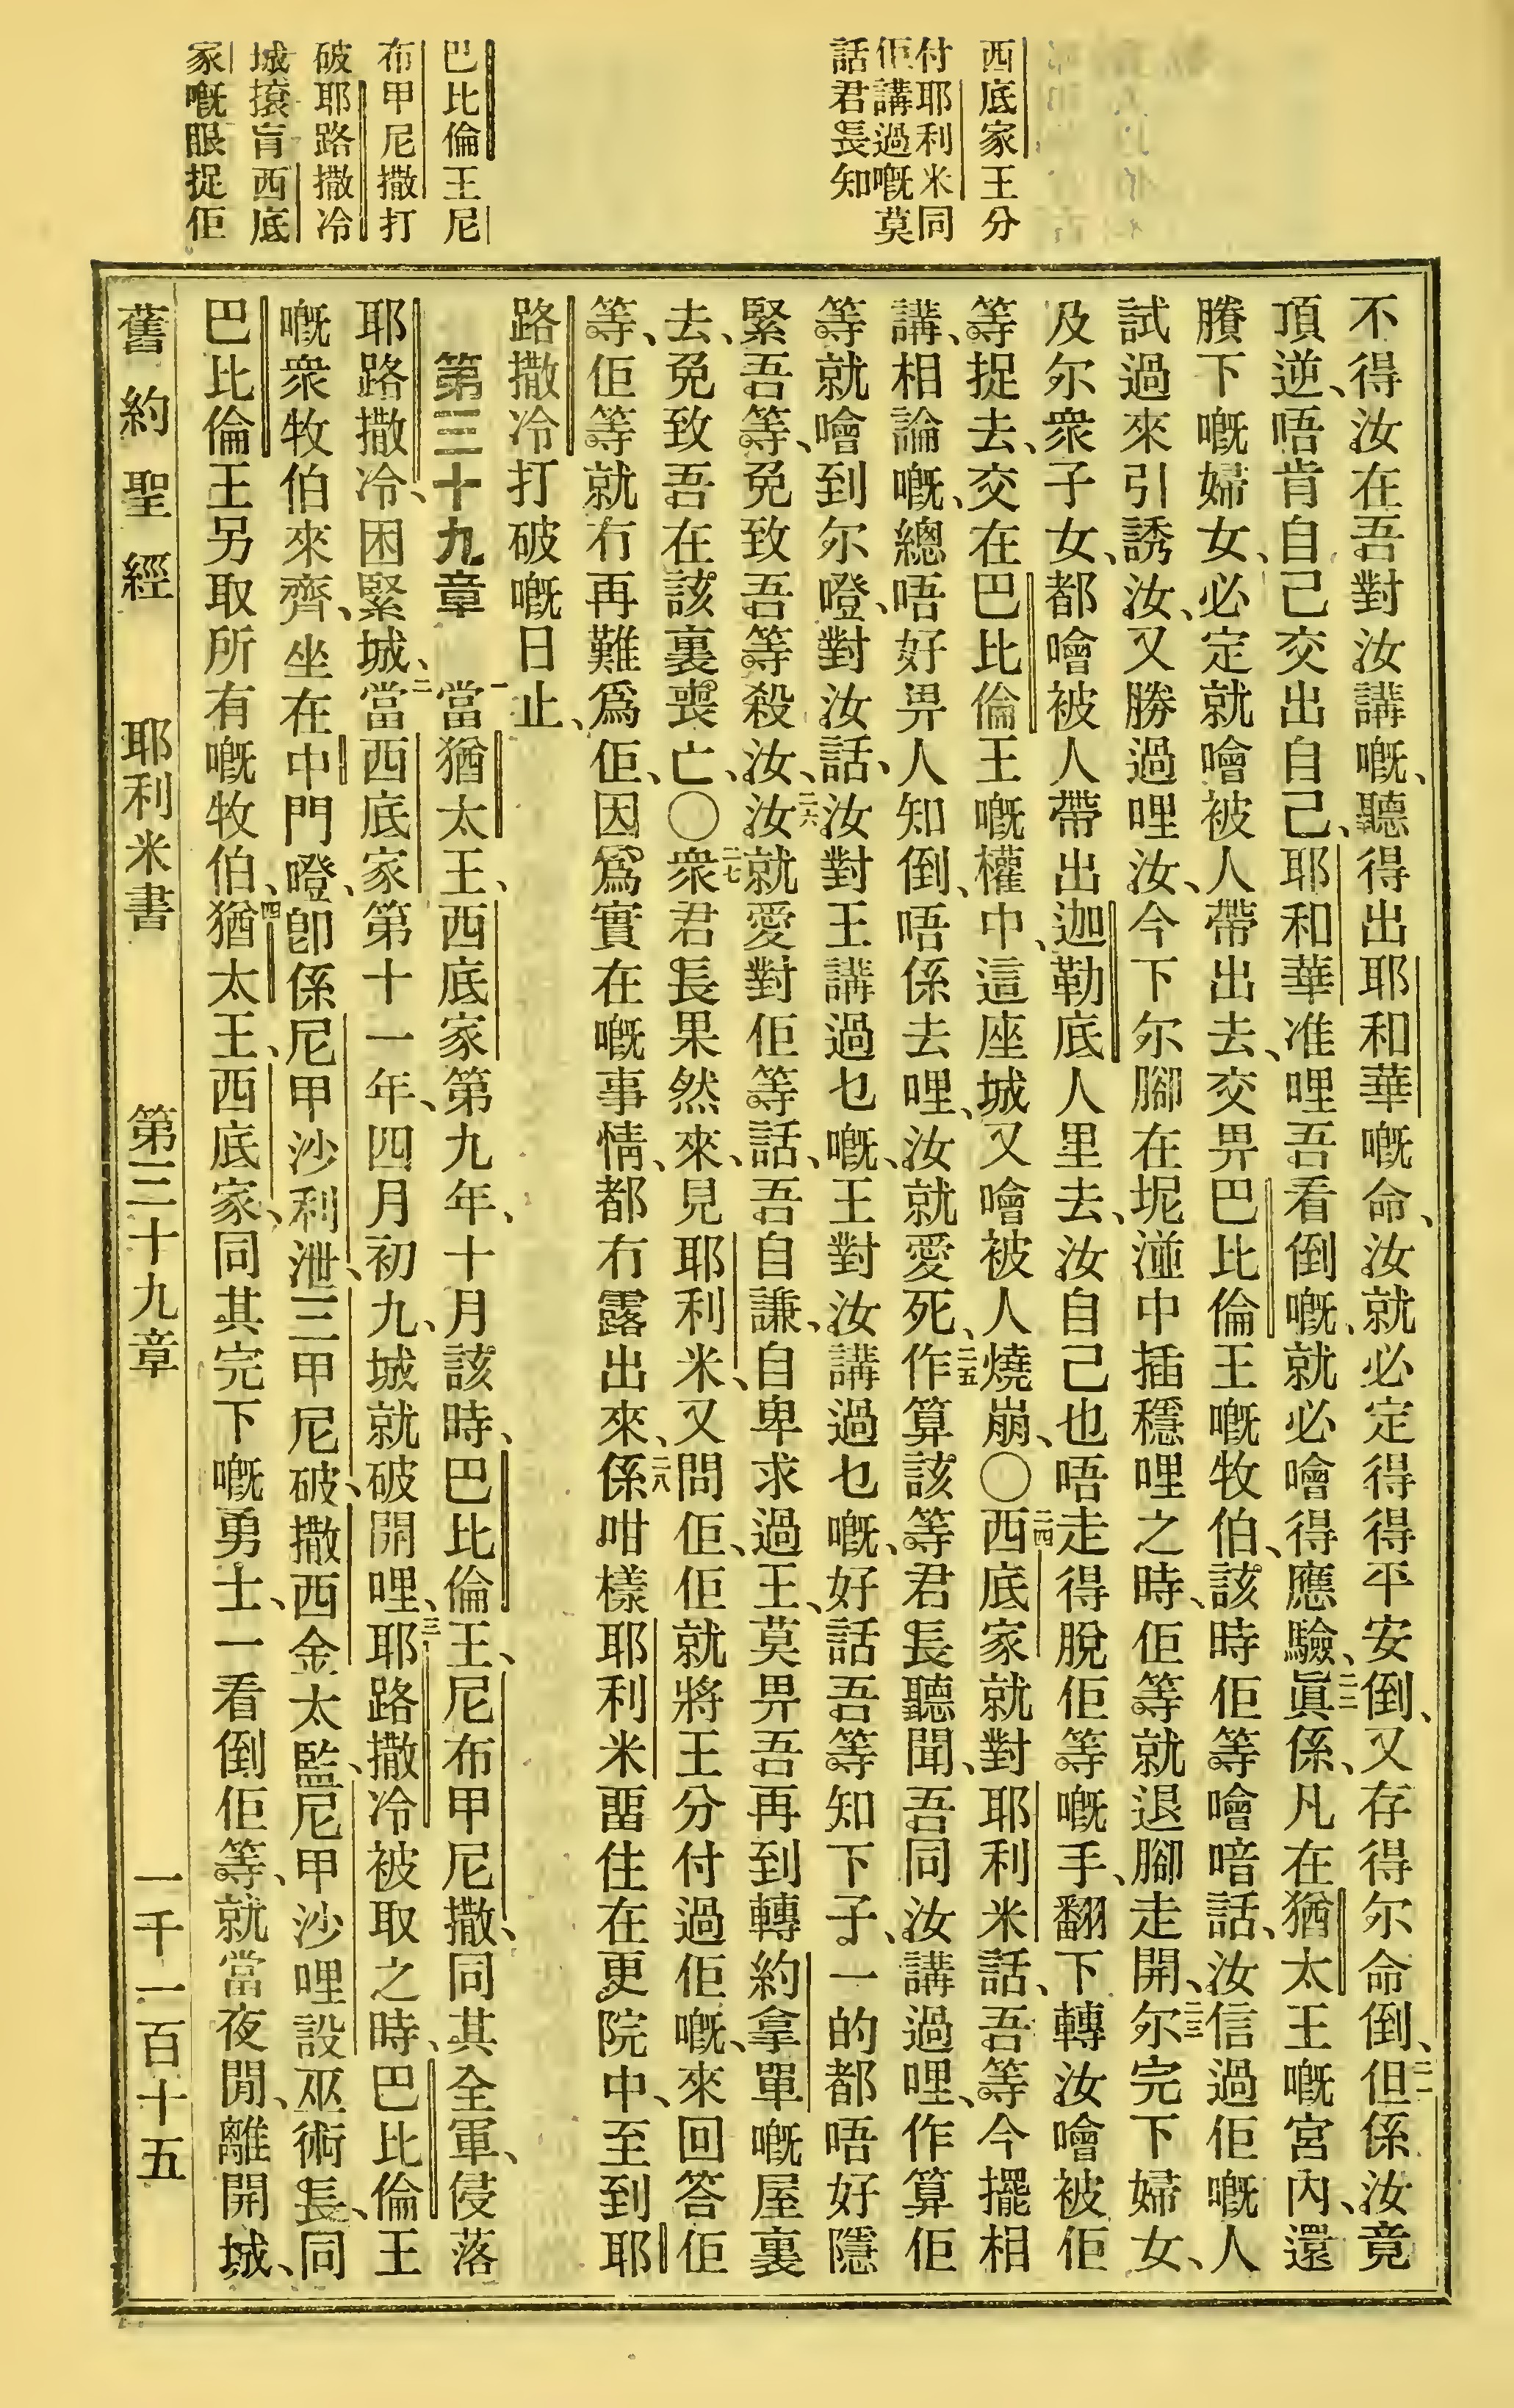 西底家王分
付耶利米同
佢講過嘅莫
話君長知
巴比倫王尼
布甲尼撒打
破耶路撒冷
城㨴盲西底
家嘅眼捉佢
不得汝在吾對汝講嘅、聽得出耶和華嘅命、汝就必定得得平安倒、又存得尔命倒、二一但係汝竟
頂逆、唔肯自己交出自己、耶和華准哩吾看倒嘅、就必噲得應驗、二二眞係、凡在猶太王嘅宮內、還
賸下嘅婦女、必定就噲被人帶出去、交畀巴比倫王嘅牧伯、該時佢等噲喑話、汝信過佢嘅人
試過來引誘汝、又勝過哩汝、今下尔腳在坭湴中插穩哩之時、佢等就退腳走開、二三尔完下婦女、
及尔衆子女、都噲被人帶出迦勒底人里去、汝自己也唔走得脫佢等嘅手、翻下轉汝噲被佢
等捉去、交在巴比倫王嘅權中、這座城又噲被人燒崩、〇二四西底家就對耶利米話、吾等今擺相
講、相論嘅、總唔好畀人知倒、唔係去哩、汝就愛死、二五作算該等君長聽聞、吾同汝講過哩、作算佢
等就噲到尔嶝、對汝話、汝對王講過乜嘅、王對汝講過乜嘅、好話吾等知下子、一的都唔好隱
緊吾等、免致吾等殺汝、二六汝就愛對佢等話、吾自謙、自卑求過王、莫畀吾再到轉約拿單嘅屋裏
去、免致吾在該裏喪亡、〇二七衆君長果然來、見耶利米、又問佢、佢就將王分付過佢嘅、來回答佢
等、佢等就冇再難爲佢、因爲實在嘅事情、都冇露出來、二八係咁樣耶利米畱住在更院中、至到耶
路撒冷打破嘅日止、
第三十九章　一當猶太王、西底家第九年、十月該時、巴比倫王、尼布甲尼撒、同其全軍、侵落
耶路撒冷、困緊城、二當西底家第十一年、四月初九、城就破開哩、三耶路撒冷被取之時、巴比倫王
嘅衆牧伯來齊、坐在中門嶝、卽係尼甲沙利泄、三甲尼破、撒西金太監、尼甲沙哩設巫術長、同
巴比倫王另取所有嘅牧伯、四猶太王、西底家、同其完下嘅勇士、一看倒佢等、就當夜閒、離開城、
舊約聖經　耶利米書　第三十九章　一千一百十五